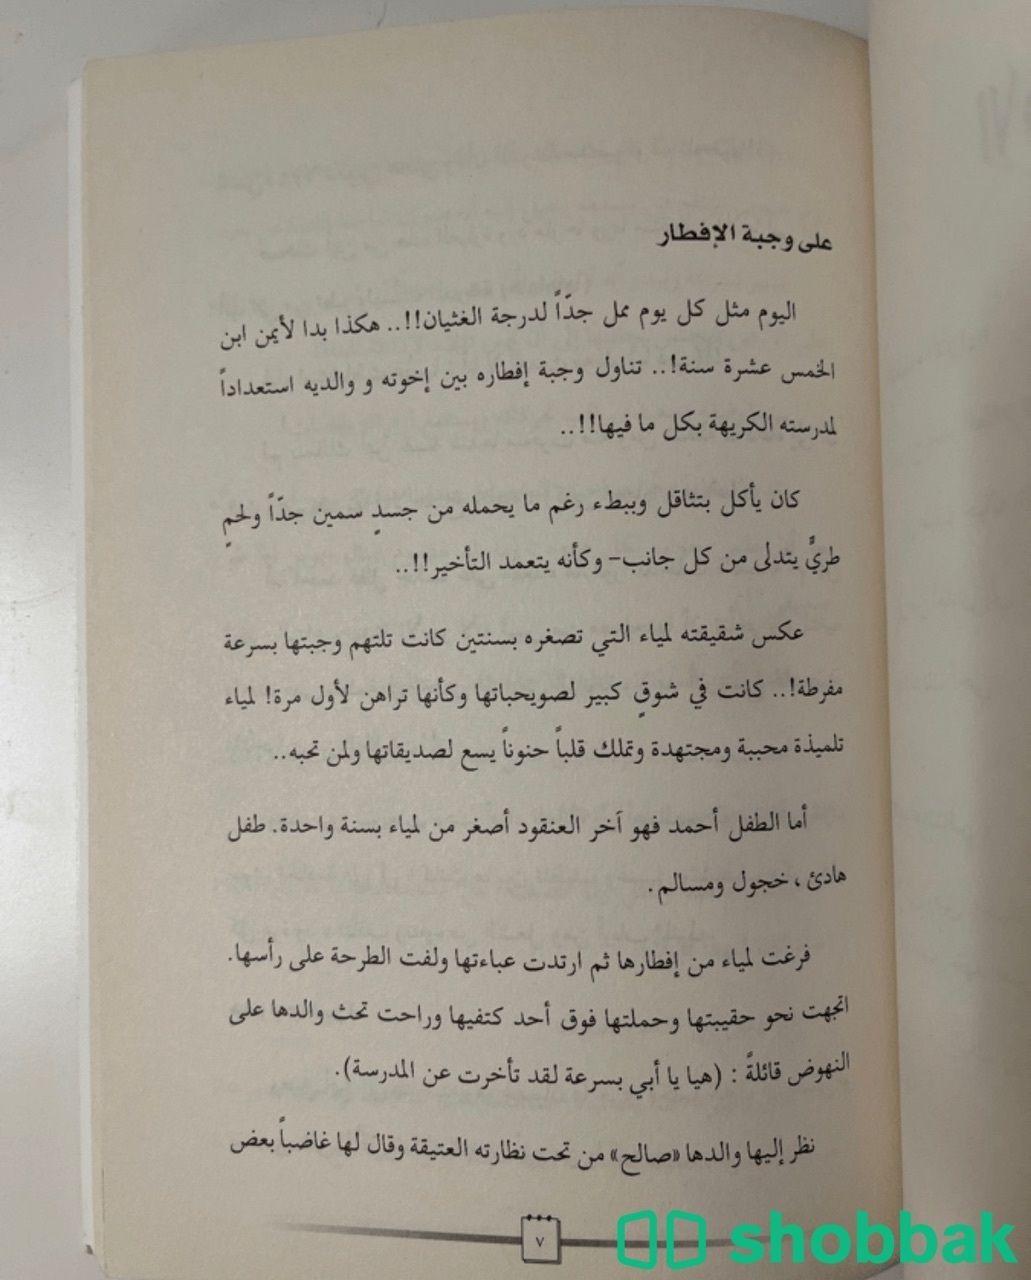 على وجبة الإفطار
اليوم مثل كل يوم ممل جدّاً لدرجة الغثيان!!.. هكذا بدا لأيمن ابن
الخمس عشرة سنة!.. تناول وجبة إفطاره بين إخوته و والديه استعداداً
لمدرسته الكريهة بكل ما فيها!!..
كان يأكل بتثاقل وببطء رغم ما يحمله من جسدٍ سمين جدّاً ولحمٍ
طريٍّ يتدلى من كل جانب- وكأنه يتعمد التأخير!!..
عكس شقيقته لمياء التي تصغره بسنتين كانت تلتهم وجبتها بسرعة
مفرطة!.. كانت في شوقٍ كبير لصويحباتها وكأنها تراهن لأول مرة! لمياء
تلميذة محببة ومجتهدة وتملك قلباً حنوناً يسع لصديقاتها ولمن تحبه..
أما الطفل أحمد فهو آخر العنقود أصغر من لمياء بسنة واحدة. طفل
هادئ ، خجول ومسالم.
فرغت لمياء من إفطارها ثم ارتدت عباءتها ولفت الطرحة على رأسها.
اتجهت نحو حقيبتها وحملتها فوق أحد كتفيها وراحت تحث والدها على
النهوض قائلةً : (هيا يا أبي بسرعة لقد تأخرت عن المدرسة).
نظر إليها والدها «صالح» من تحت نظارته العتيقة وقال لها غاضباً بعض
٧
shobbak